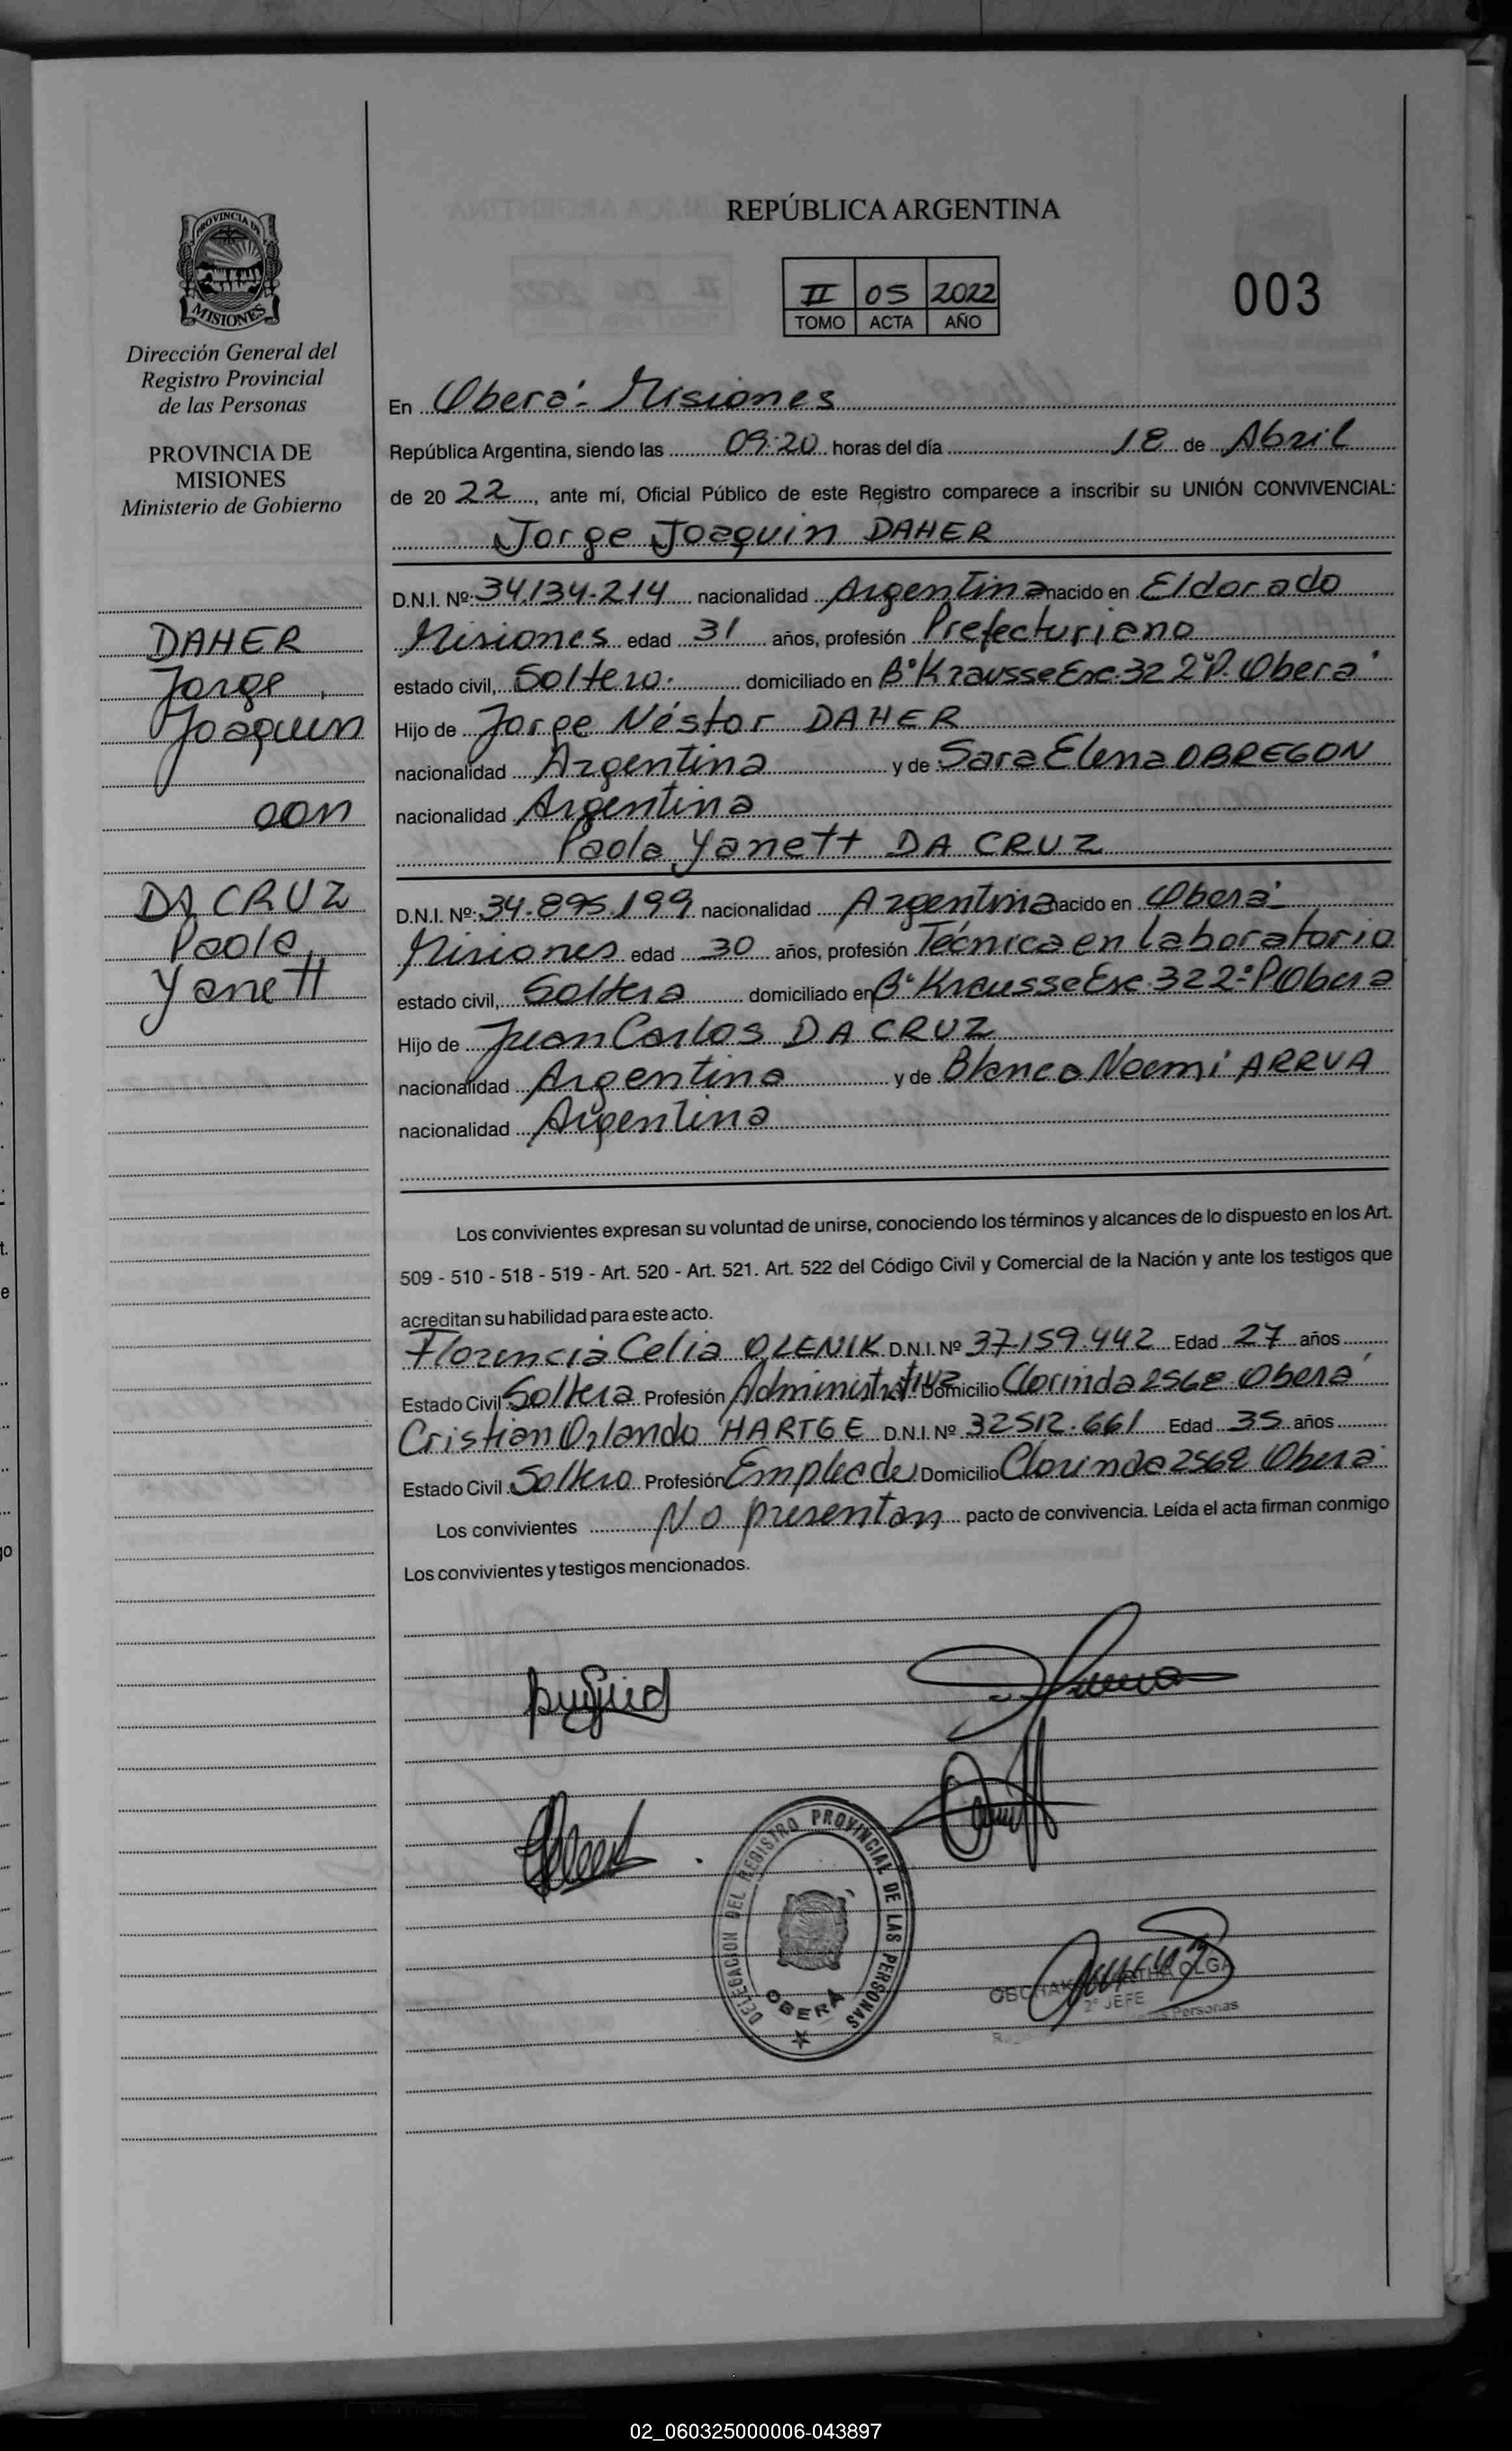 REPÚBLICA ARGENTINA
PROVINCIA DE
MISIONES
II 05 2022
TOMO ACTA AÑO
003
Dirección General del
Registro Provincial
de las Personas
PROVINCIA DE
MISIONES
Ministerio de Gobierno
DAHER
Jorge
Joaquin
con
DA CRUZ
Paola
Yanett
En Oberá - Misiones
República Argentina, siendo las 09:20 horas del día 18 de Abril
de 20 22, ante mí, Oficial Público de este Registro comparece a inscribir su UNIÓN CONVIVENCIAL:
Jorge Joaquin DAHER
D.N.I. Nº: 34.134.214 nacionalidad Argentina nacido en Eldorado
Misiones edad 31 años, profesión Prefecturiano
estado civil, Soltero. domiciliado en Bº Krausse Esc. 32 2ºP. Oberá
Hijo de Jorge Néstor DAHER
nacionalidad Argentina y de Sara Elena OBREGON
nacionalidad Argentina
Paola Yanett DA CRUZ
D.N.I. Nº: 34.895.199 nacionalidad Argentina nacido en Oberá
Misiones edad 30 años, profesión Técnica en laboratorio
estado civil, Soltera domiciliado en Bº Krausse Esc. 32 2ºP Oberá
Hijo de Juan Carlos DA CRUZ
nacionalidad Argentina y de Blanca Noemi ARRUA
nacionalidad Argentina
Los convivientes expresan su voluntad de unirse, conociendo los términos y alcances de lo dispuesto en los Art.
509 - 510 - 518 - 519 - Art. 520 - Art. 521. Art. 522 del Código Civil y Comercial de la Nación y ante los testigos que
acreditan su habilidad para este acto.
Florencia Celia OLENIK D.N.I. Nº 37.159.442 Edad 27 años
Estado Civil Soltera Profesión Administrativa Domicilio Clorinda 2568 Oberá
Cristian Orlando HARTGE D.N.I. Nº 32512.661 Edad 35 años
Estado Civil Soltero Profesión Empleado Domicilio Clorinda 2568 Oberá
Los convivientes No presentan pacto de convivencia. Leída el acta firman conmigo
Los convivientes y testigos mencionados.
DELEGACION DEL REGISTRO PROVINCIAL DE LAS PERSONAS
OBERA
OLGA
2º JEFE
Personas
02_060325000006-043897